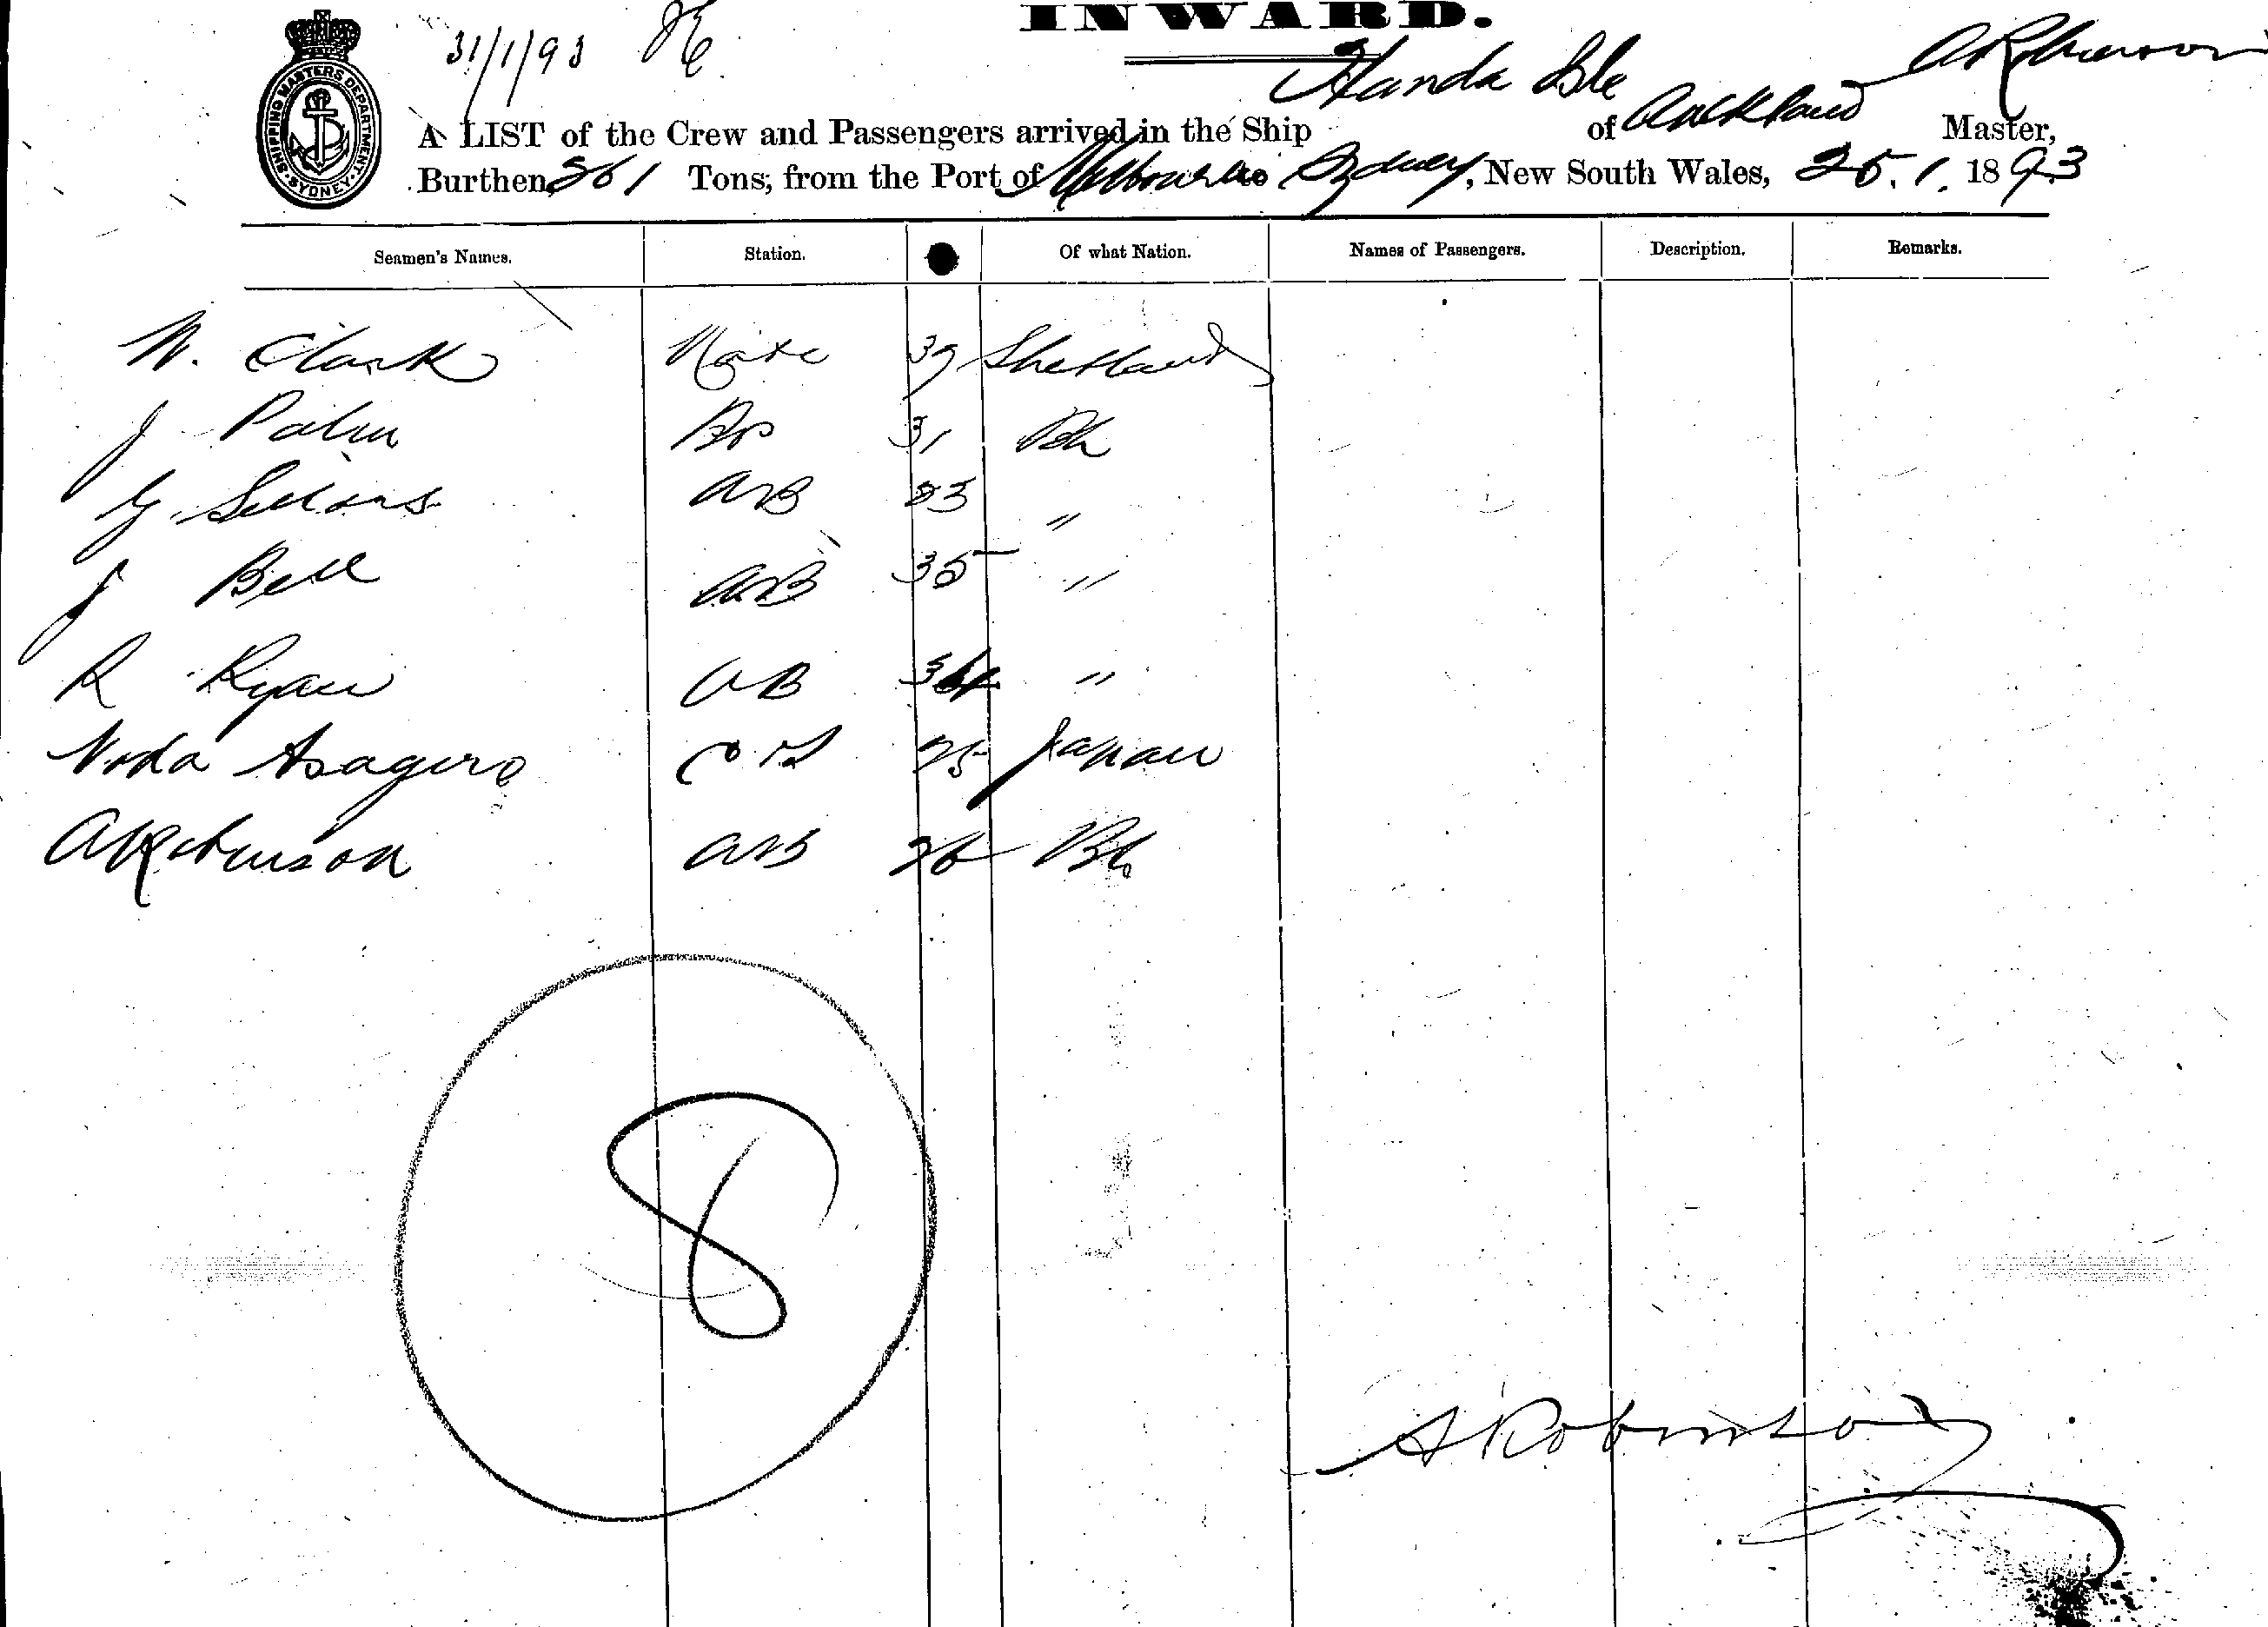 INWARD.
31/1/93
SHIPPING MASTERS DEPARTMENT SYDNEY
A LIST of the Crew and Passengers arrived in the Ship Handa Isle of Auckland A Robinson Master,
Burthen 361 Tons, from the Port of Melbourne to Sydney, New South Wales, 25.1.1893
Seamen's Names. Station. Of what Nation. Names of Passengers. Description. Remarks.
W. Clark Mate 39 Shetland
J Palm 31 Bh
G. Sellars AB 23 "
J Bell AB 35 "
R Ryan AB "
Noda Asagiro 25 Japan
A Robinson AB 26 Bh
8
A Robinson